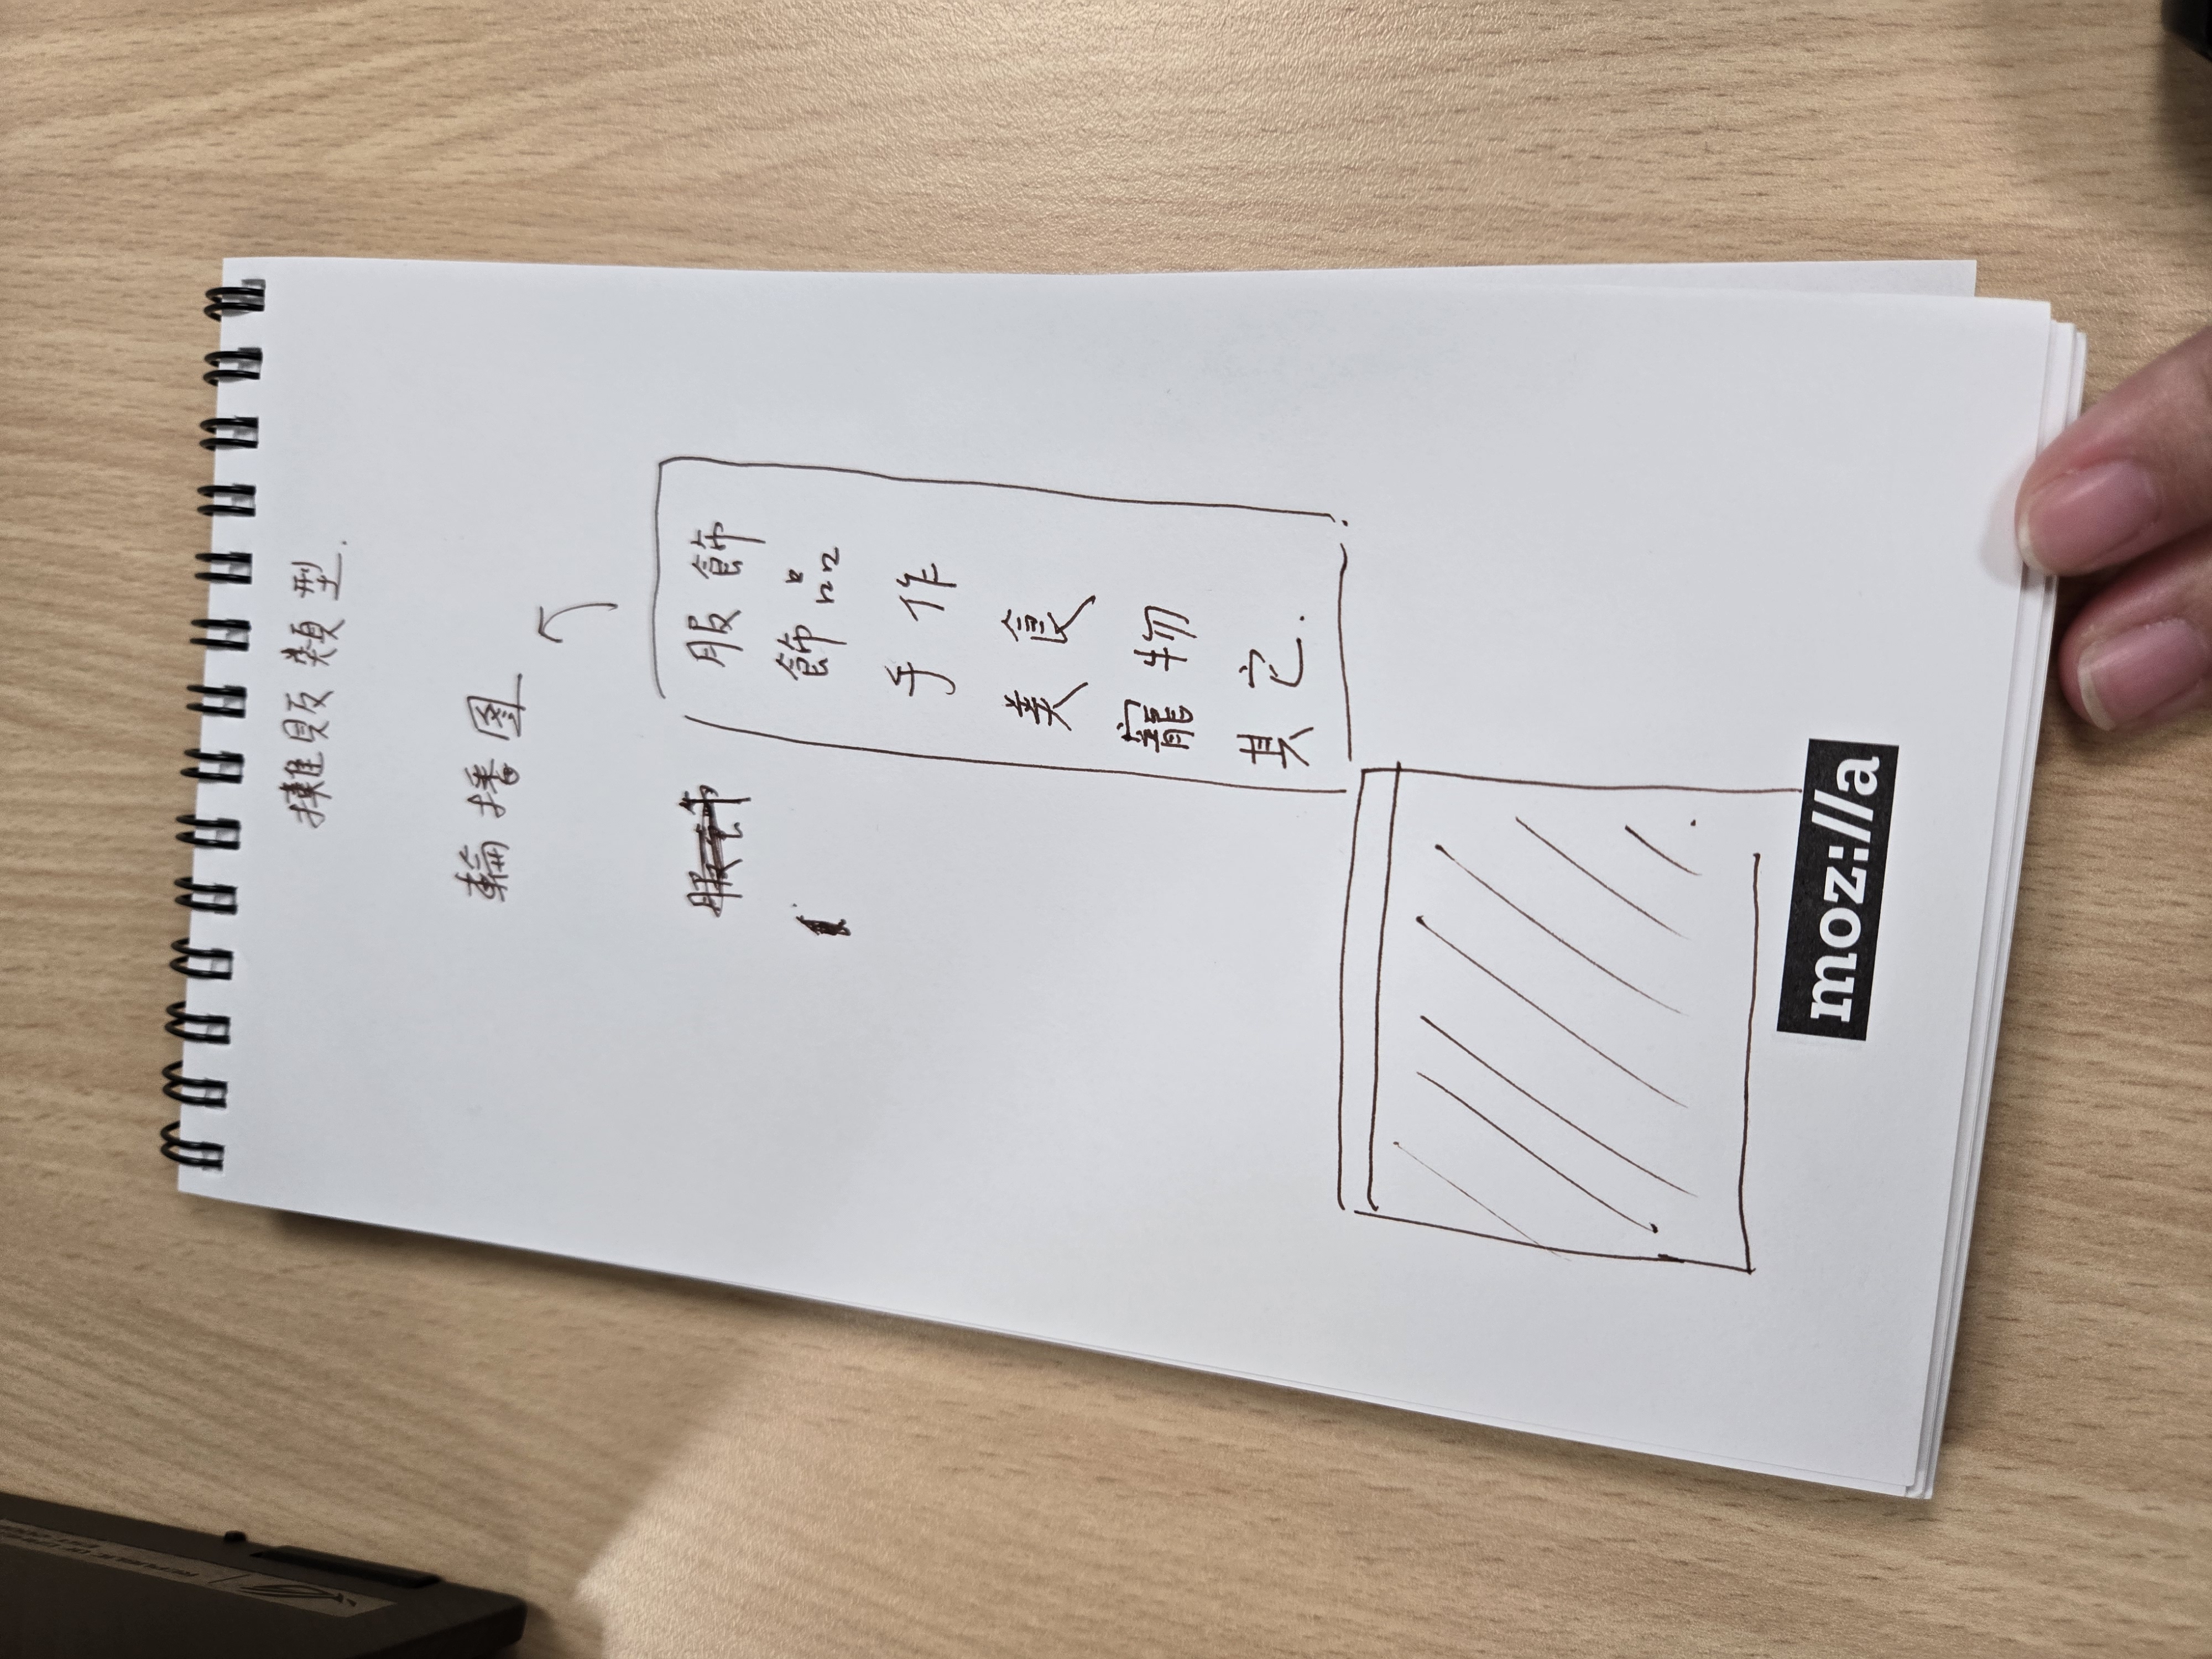 攤販類型.
輪播图
服飾
服飾
飾品
手作
美食
寵物
其它.
moz://a